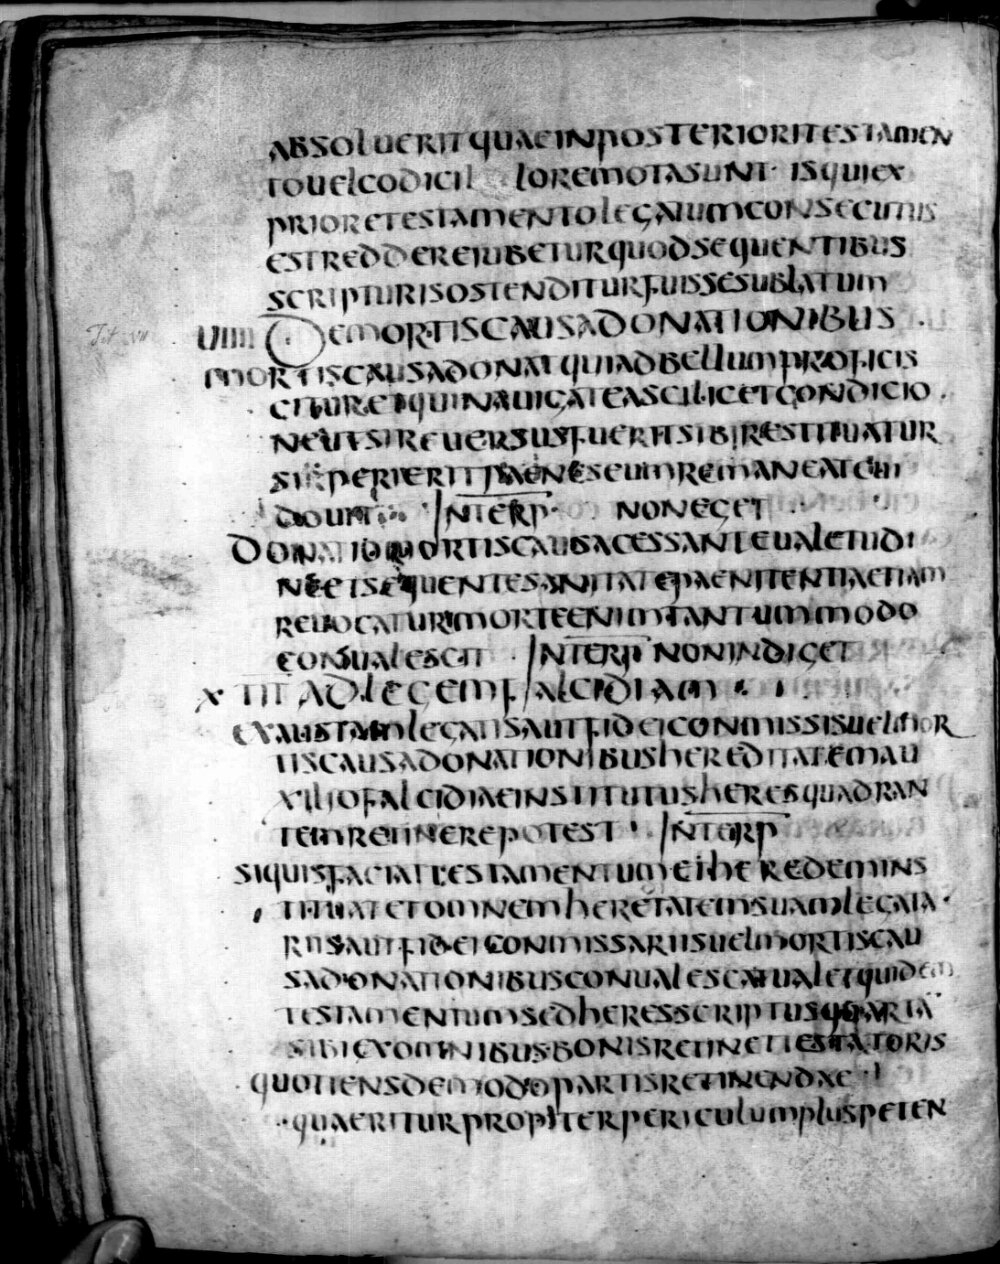 ABSOLUERITQUAEINPOSTERIORITESTAMEN
TOUELCODICIL LOREMOTASUNT· ISQUIEX
PRIORETESTAMENTOLEGATUMCONSECUTUS
ESTREDDEREIUBETURQUODSEQUENTIBUS
SCRIPTURISOSTENDITURFUISSESUBLATUM
Tit. VII
UIIII DEMORTISCAUSADONATIONIBUS ·
MORTISCAUSADONATQUIADBELLUMPROFICIS
CITURETQUINAUIGATEASCILICETCONDICIO·
NEUTSIREUERSUSFUERITSIBIRESTITUATUR
SI PERIERITPAENESEUMREMANEATCUI
DOUIT INTERP· NONEGET
DONATIOMORTISCAUSACESSANTEUALETUDI
NEETSEQUENTESANITATEPAENITENTIAETIAM
REUOCATURMORTEENIMTANTUMMODO
CONUALESCIT INTERP NONINDIGET
XIII ADLEGEMFALCIDIAM ·
EXAUSTAMLEGATISAUTFIDEICOMMISSISUELMOR
TISCAUSADONATIONIBUSHEREDITATEMAU
XILIOFALCIDIAEINSTITUTUSHERESQUADRAN
TEMRETINEREPOTEST · INTERP
SIQUISFACIATTESTAMENTUMETHEREDEMINS
TITUATETOMNEMHERETATEMSUAMLEGATA·
RIISAUTFIDEICONMISSARIISUELMORTISCAU
SADONATIONIBUSCONUALESCATUALETQUIDEM
TESTAMENTUMSEDHERESSCRIPTUSQUARTA
SIBIEXOMNIBUSBONISRETINETTESTATORIS
QUOTIENSDEMODOPARTISRETINENDAE ·
QUAERITURPROPTERPERICULUMPLUSPETEN